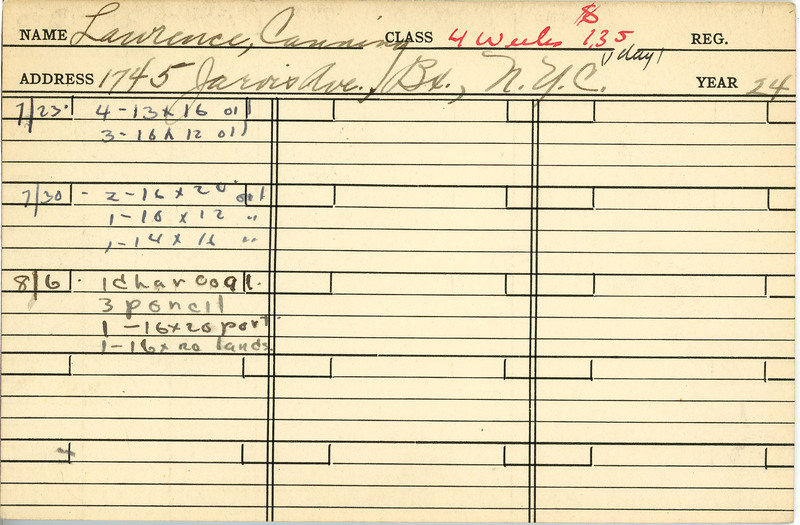 NAME Lawrence, Canning CLASS 4 Weeks $135 REG.
1 day
ADDRESS 1745 Jarvis Ave., Bx., N.Y.C. YEAR 24
7/23. 4-13x16 oil
3-16x12 oil
7/30 - 2-16x20 oil
1-16x12 "
1-14x16 "
8/6. 1 charcoal.
3 pencil
1-16x20 port.
1-16x20 lands.